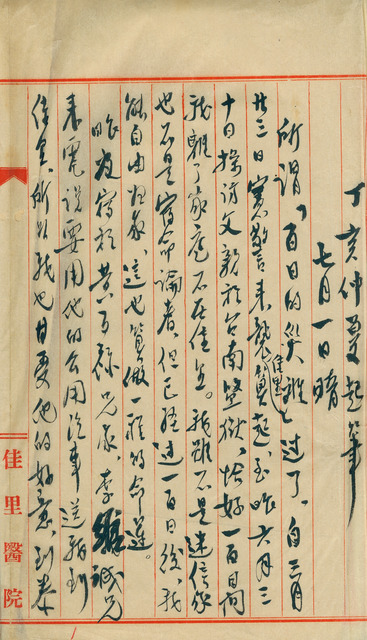 丁亥仲夏起筆
七月一日晴
所謂「百日的災難」過了。自三月
廿三日憲警來襲佳里算起至昨六月三
十日探訪父親於台南監獄、恰好一百日間
我離了家庭不在佳里。我雖不是迷信家
也不是宿命論者、但已經過一百日後、我
能自由歸家、這也算做一種的命運。
昨夜宿於黃百祿兄家、李誠兄
來電說要用他的公用汽車送我到
佳里、所以我也甘受他的好意、到泰
佳里醫院